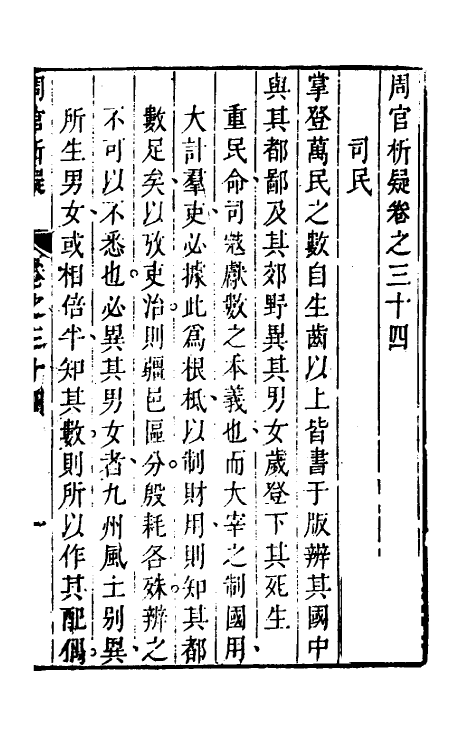 周官析疑卷之三十四
司民
掌登萬民之數自生齒以上皆書于版辨其國中
與其都鄙及其郊野異其男女歲登下其死生
重民命司寇獻數之本義也而大宰之制國用、
大計羣吏必據此爲根柢以制財用則知其都
數足矣以攷吏治則疆邑區分。殷耗各殊辨之
不可以不悉也。必異其男女者、九州風土別異、
所生男女或相倍半、知其數則所以作其配偶。
周官析疑 卷之三十四 一